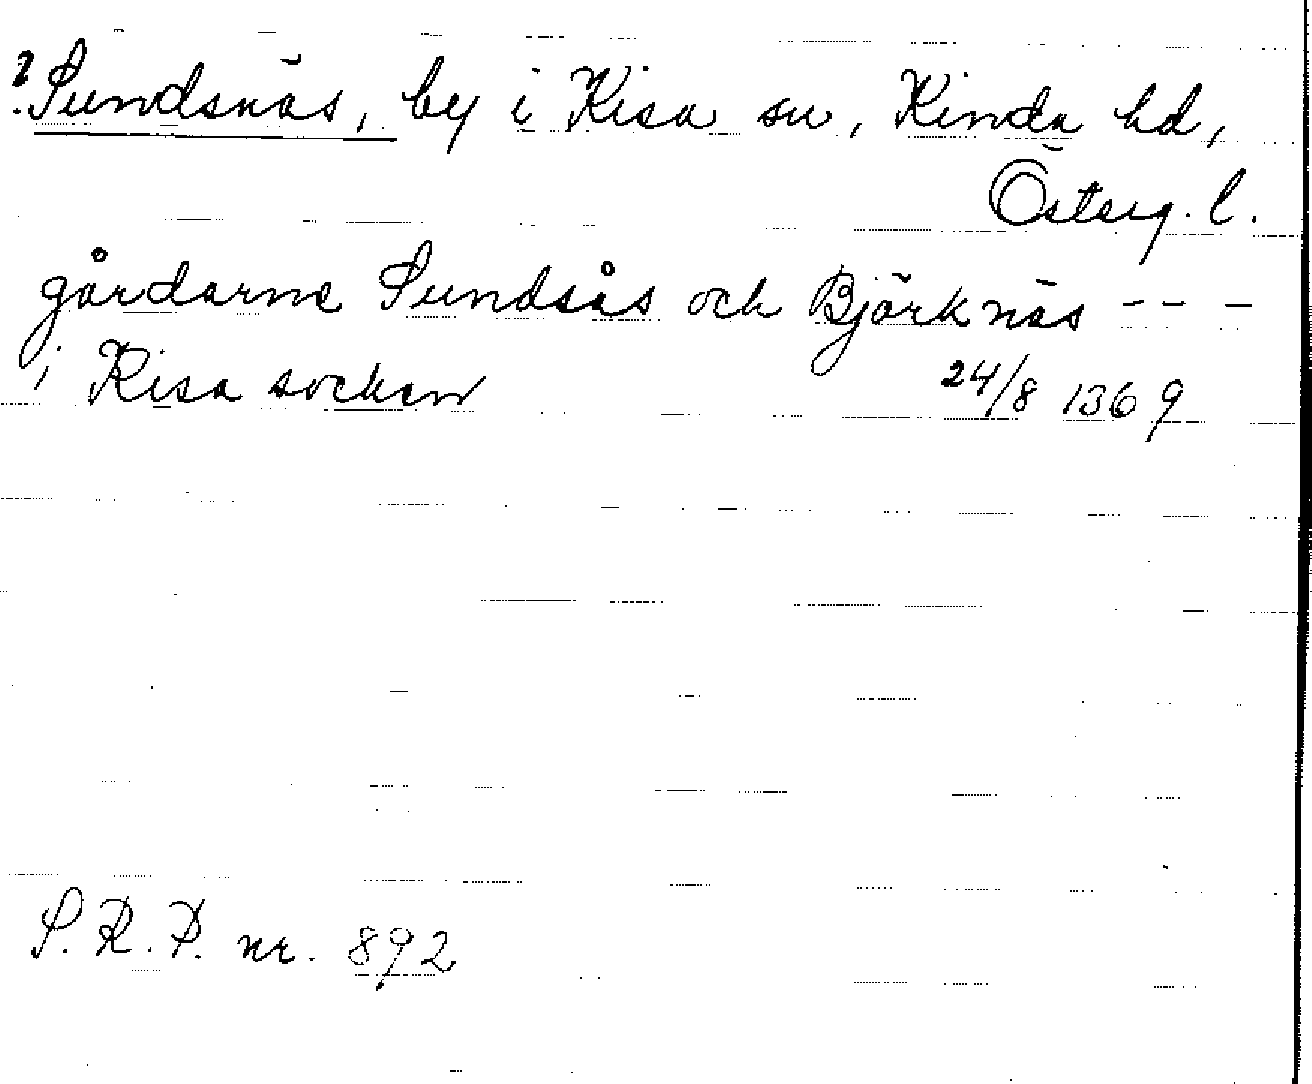 ? Sundsnäs, by i Kisa sn, Kinda hd,
Österg. l.
gårdarne Sundsås och Björknäs - - -
i Kisa socken 24/8 1369
S. R. P. nr. 892